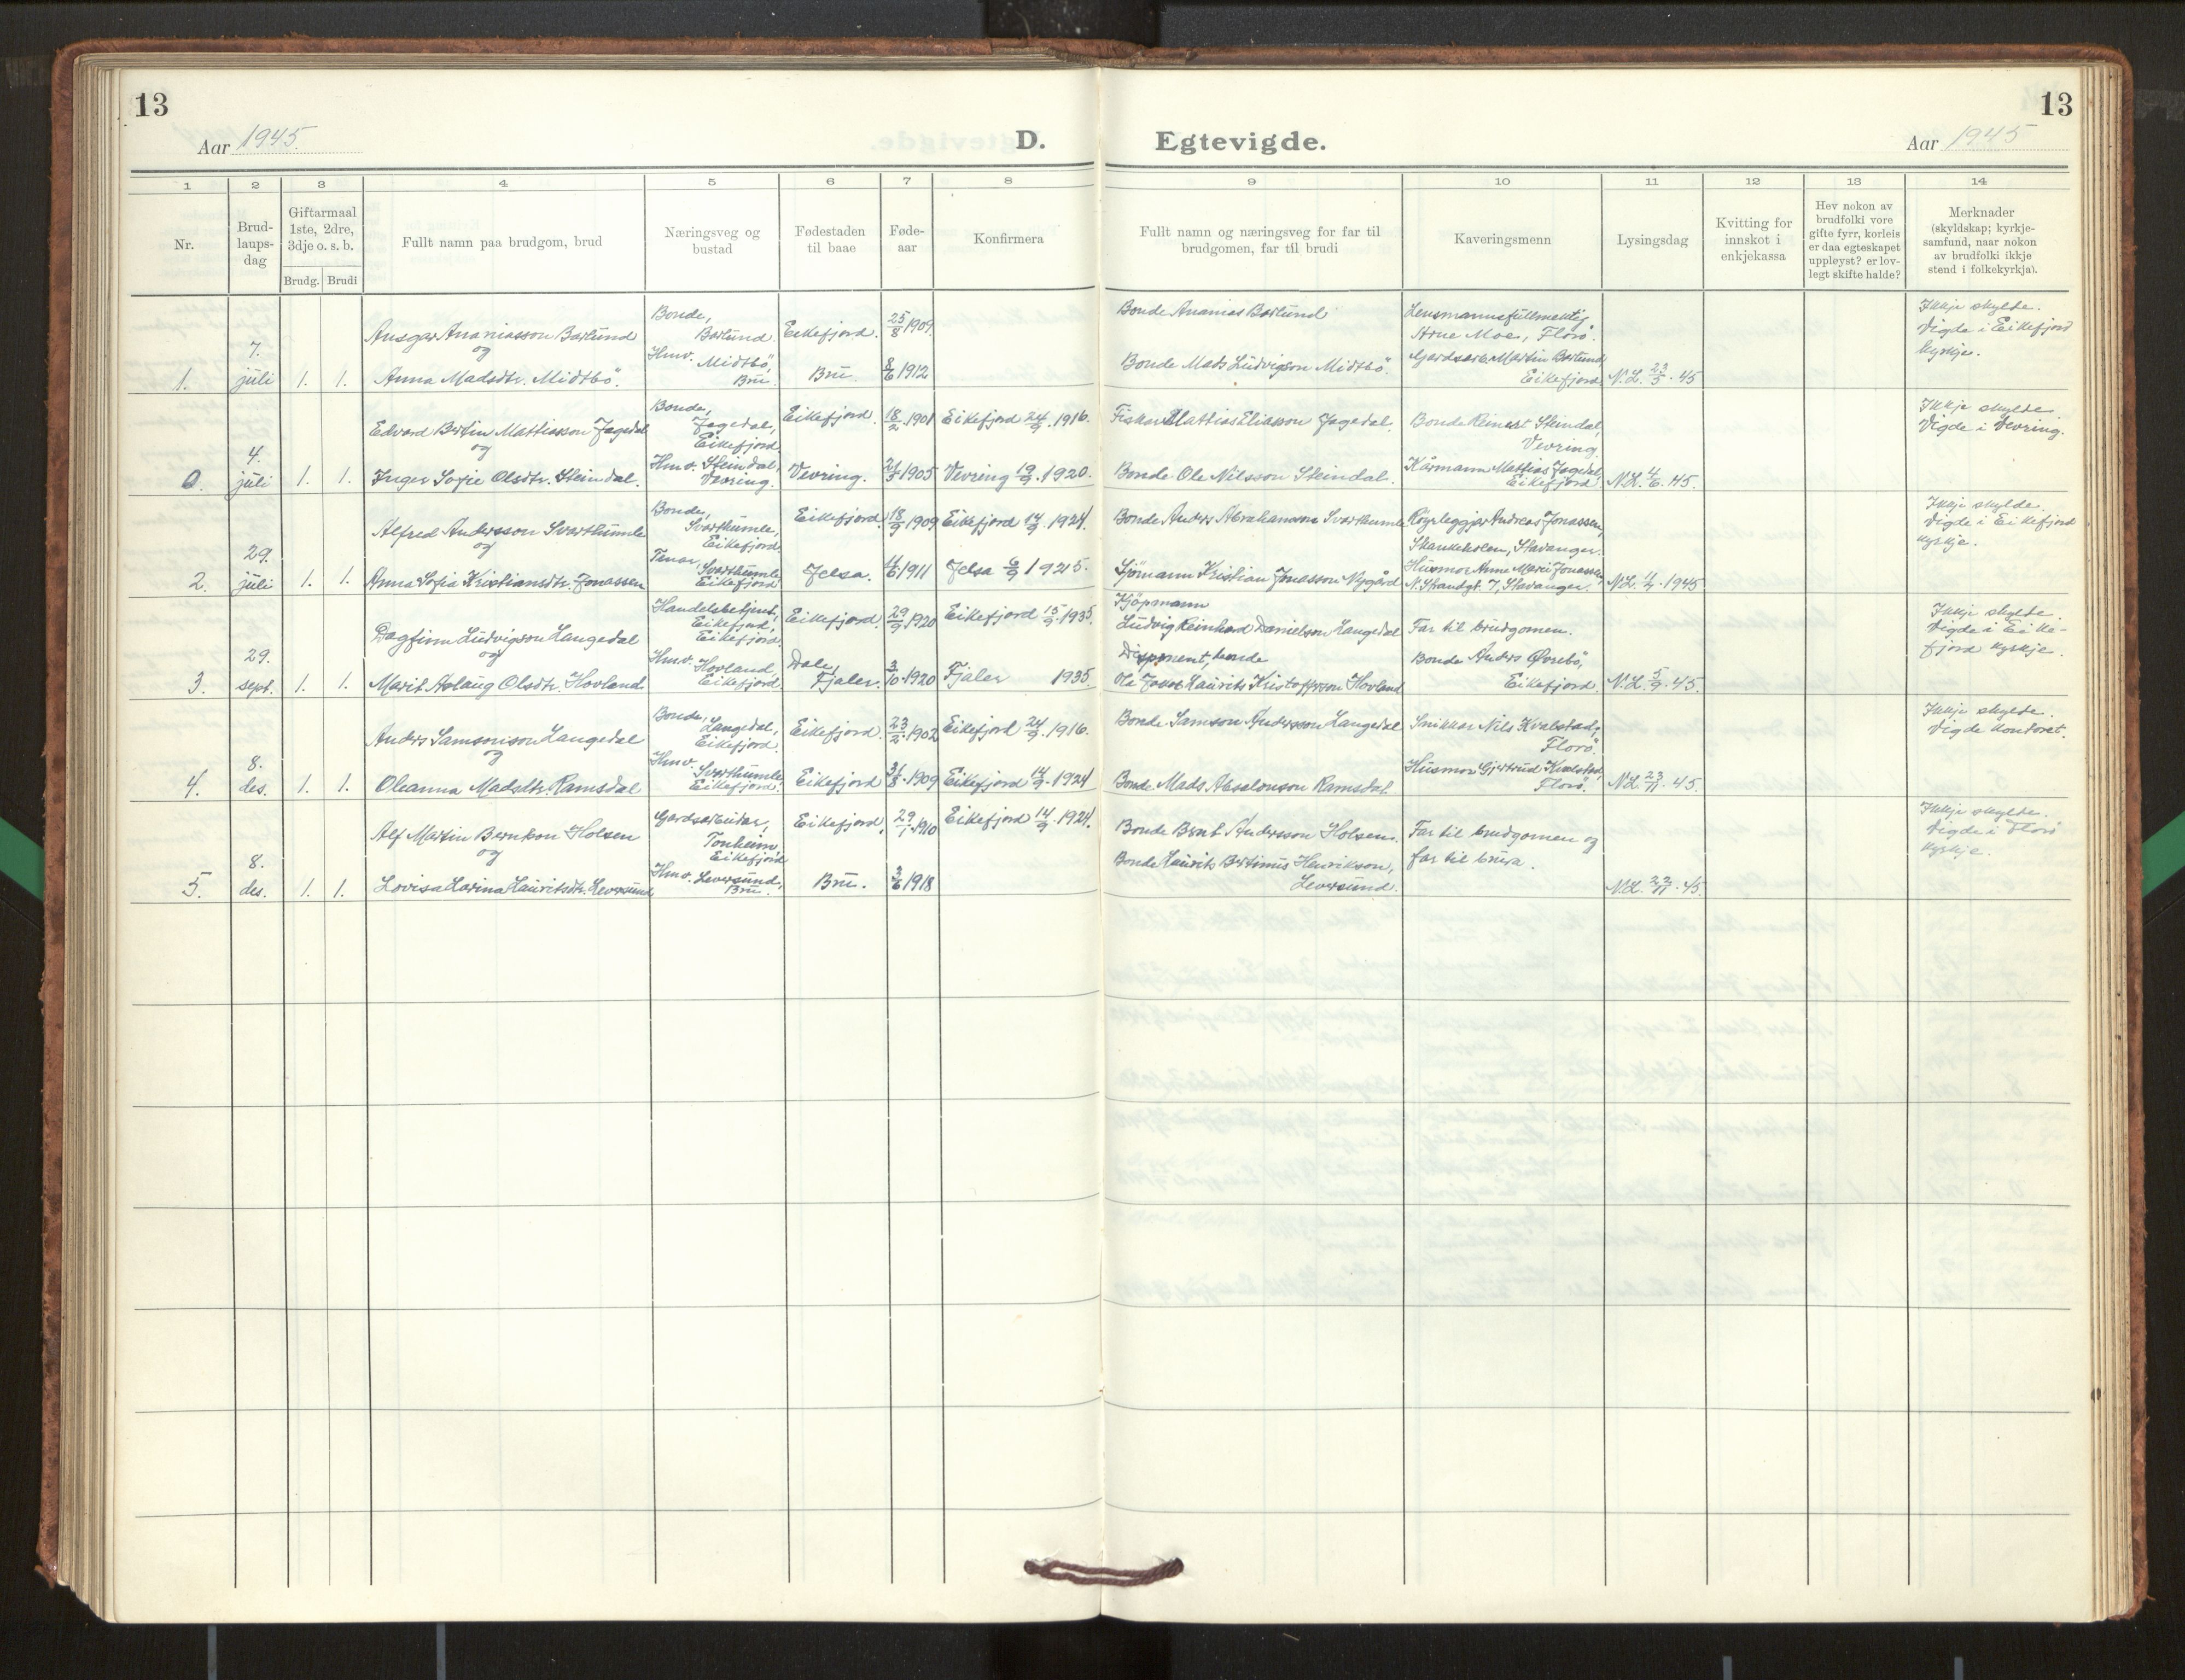 13
Aar 1945.
D.
Egtevigde.
Aar 1945
13
1 2 3 4 5 6 7 8 9 10 11 12 13 14
Nr.
Brud-
laups-
dag
Giftarmaal
1ste, 2dre,
3dje o. s. b.
Brudg. Brudi
Fullt namn paa brudgom, brud
Næringsveg og
bustad
Fødestaden
til baae
Føde-
aar
Konfirmera
Fullt namn og næringsveg for far til
brudgomen, far til brudi
Kaveringsmenn
Lysingsdag
Kvitting for
innskot i
enkjekassa
Hev nokon av
brudfolki vore
gifte fyrr, korleis
er daa egteskapet
uppløyst? er lov-
legt skifte halde?
Merknader
(skyldskap; kyrkje-
samfund, naar nokon
av brudfolki ikkje
stend i folkekyrkja).
1.
7.
juli
1. 1.
Ansgar Ananiasson Barlund
og
Anna Madsdtr. Midtbö.
Bonde,
Barlund
Hmv. Midtbö,
Bru.
Eikefjord.
Bru.
25/8 1909
8/6 1912
Bonde Ananias Barlund
Bonde Mads Ludvigson Midtbö.
Lensmannsfullmektig
Arne Moe, Florö.
Gardsarb. Martin Barlund,
Eikefjord.
N.L. 23/5. 45
Ikkje skylde.
Vigde i Eikefjord
kyrkje.
0.
4.
juli
1. 1.
Edvard Bertin Mattiasson Fagedal
og
Inger Sofie Olsdtr. Steindal.
Bonde,
Fagedal,
Eikefjord
Hmv. Steindal,
Vevring.
Eikefjord.
Vevring.
18/2 1901
21/3 1905
Eikefjord 24/9. 1916.
Vevring 19/9. 1920.
Fiskar Mattias Eliasson Fagedal.
Bonde Ole Nilsson Steindal.
Bonde Reinert Steindal,
Vevring.
Kårmann Mattias Fagedal,
Eikefjord.
N.L. 4/6. 45.
Ikkje skylde.
Vigde i Vevring.
2.
29.
juli
1. 1.
Alfred Andersson Svarthumle
og
Anna Sofia Kristiansdtr. Jonassen
Bonde,
Svarthumle,
Eikefjord.
Tenar, Svarthumle
Eikefjord
Eikefjord
Jelsa.
18/9 1909
4/6 1911
Eikefjord 14/9. 1924.
Jelsa 6/9 1925.
Bonde Anders Abrahamson Svarthumle
Sjömann Kristian Jonasson Nygård
Röyrleggjar Andreas Jonassen,
Stavanger.
Husmor Anne Marie Jonassen,
N. Strandgt. 7, Stavanger.
N.L. 11/7. 1945
Ikkje skylde.
Vigde i Eikefjord
kyrkje.
3.
29.
sept.
1. 1.
Dagfinn Ludvigson Langedal
og
Marit Aslaug Olsdtr. Hovland.
Handelsbetjent,
Eikefjord,
Eikefjord.
Hmv. Hovland,
Eikefjord.
Eikefjord.
Dale,
Fjaler.
29/9 1920
3/10 1920
Eikefjord 15/9. 1935.
Fjaler 1935.
Kjöpmann
Ludvig Reinhard Danielson Langedal
Disponent, bonde
Ole Jakob Laurits Kristoffersson Hovland
Far til brudgomen.
Bonde Anders Øvrebö,
Eikefjord.
N.L. 5/9. 45.
Ikkje skylde.
Vigde i Eike-
fjord kyrkje.
4.
8.
des.
1. 1.
Anders Samsonson Langedal
og
Oleanna Madsdtr. Ramsdal
Bonde,
Langedal,
Eikefjord.
Hmv.
Svarthumle
Eikefjord.
Eikefjord.
Eikefjord
23/2. 1902
31/8. 1909
Eikefjord 24/9. 1916.
Eikefjord 14/9. 1924
Bonde Samson Andersson Langedal
Bonde Mads Absalonson Ramsdal.
Snikkar Nils Kvalstad,
Florö.
Husmor Gjertrud Kvalstad,
Florö.
N.L. 23/11. 45.
Ikkje skylde.
Vigde kontoret.
5.
8.
des.
1. 1.
Alf Martin Berntson Holsen
og
Lovisa Larina Lauritsdtr. Leversund
Gardsarbeidar,
Tonheim
Eikefjord
Hmv. Leversund,
Bru.
Eikefjord.
Bru.
29/1 1910
3/6 1918
Eikefjord 14/9. 1924.
Bonde Bernt Andersson Holsen.
Bonde Laurits Bertinus Henrikson,
Leversund.
Far til brudgomen og
far til brura.
N.L. 22/11. 45
Ikkje skylde.
Vigde i Florö
kyrkje.